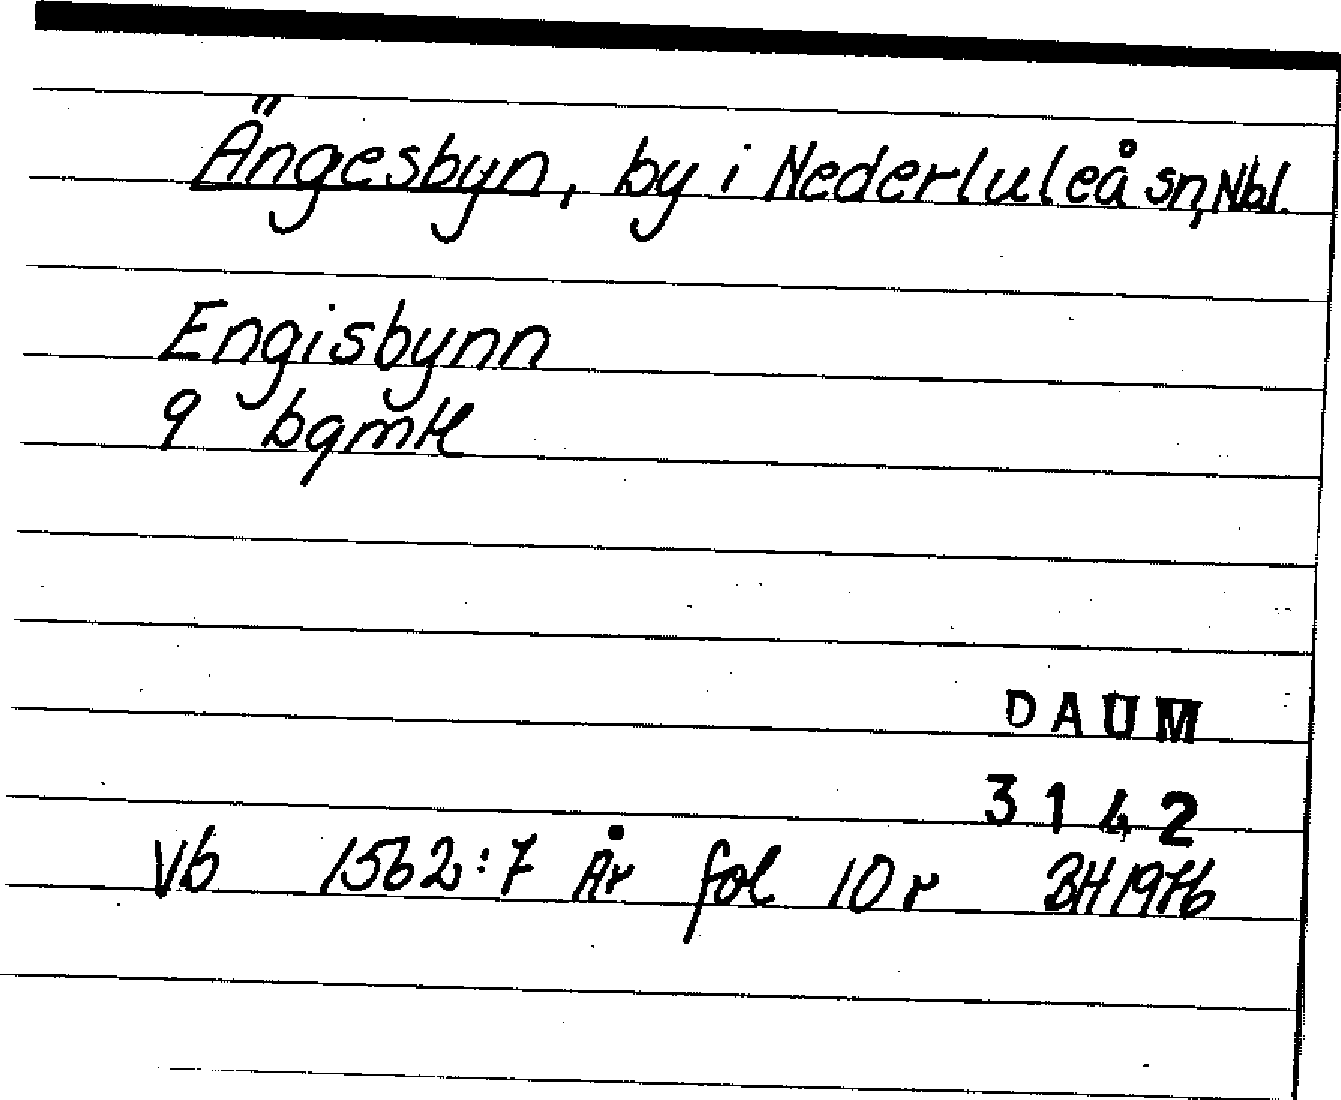 Ängesbyn, by i Nederluleå sn, Nbl.
Engisbynn
9 bqmtl
DAUM
3142
Vb 1562:7 År fol 10 r BH 1976